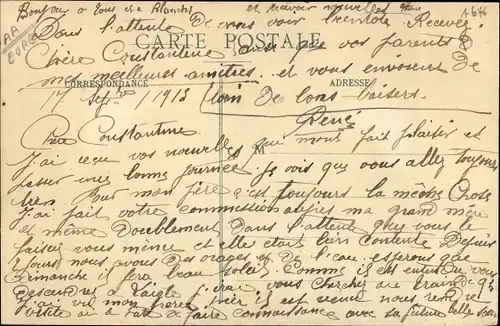 Bonjour à tous de Blanche
et recevoir nouvelles
Dans l'attente De vous voir bientôt Recevez
CARTE POSTALE
Chère Constantine ainsi que vos parents
mes meilleures amitiés et vous envoient de
CORRESPONDANCE
ADRESSE
17 1913 loin De bons baisers.
René
Chère Constantine
J'ai reçu vos nouvelles qui nous fait plaisir et
passer une bonne journée je vois que vous allez toujours
bien Pour mon père c'est toujours la même chose
J'ai fait votre commission auprès ma grand mère
et même Doublement Dans l'attente que vous le
faisiez vous même et elle était bien contente Depuis
jours nous avons Des orages et De l'eau. esperons que
dimanche il fera beau soleil Comme il est entendu vous
Descendrez à Laigle j'irai vous chercher au train de 9h
J'ai vu mon frère hier il est venu nous rendre
visite de faire connaissance avec sa future belle